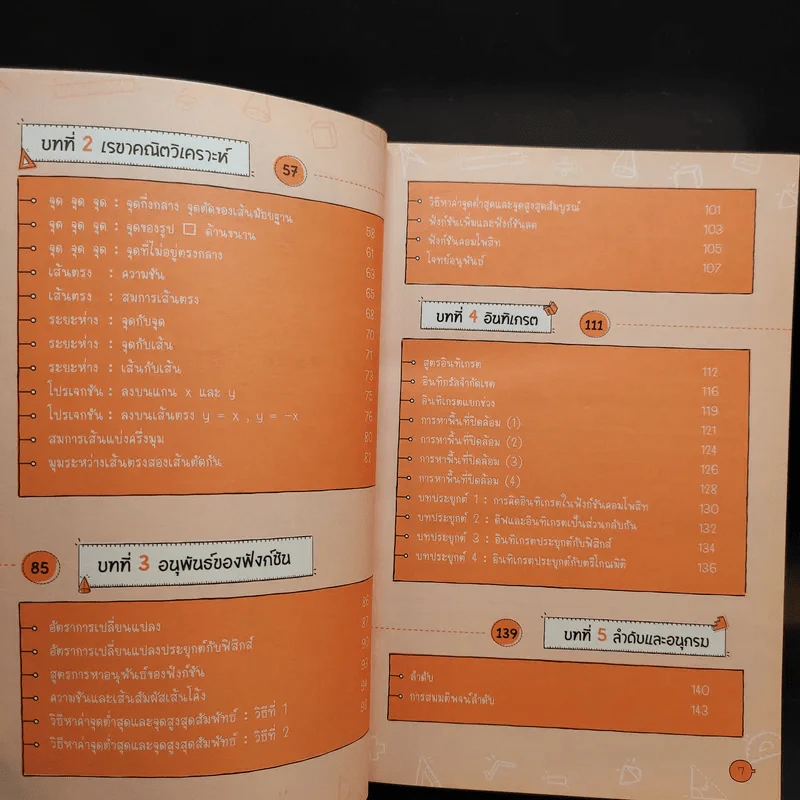 บทที่ 2 เรขาคณิตวิเคราะห์ 57
จุด จุด จุด : จุดกึ่งกลาง จุดตัดของเส้นมัธยฐาน 58
จุด จุด จุด : จุดของรูป □ ด้านขนาน 61
จุด จุด จุด : จุดที่ไม่อยู่ตรงกลาง 63
เส้นตรง : ความชัน 65
เส้นตรง : สมการเส้นตรง 68
ระยะห่าง : จุดกับจุด 70
ระยะห่าง : จุดกับเส้น 71
ระยะห่าง : เส้นกับเส้น 73
โปรเจกชัน : ลงบนแกน x และ y 75
โปรเจกชัน : ลงบนเส้นตรง y = x , y = -x 76
สมการเส้นแบ่งครึ่งมุม 80
มุมระหว่างเส้นตรงสองเส้นตัดกัน 82
85 บทที่ 3 อนุพันธ์ของฟังก์ชัน
อัตราการเปลี่ยนแปลง 86
อัตราการเปลี่ยนแปลงประยุกต์กับฟิสิกส์ 87
สูตรการหาอนุพันธ์ของฟังก์ชัน 90
ความชันและเส้นสัมผัสเส้นโค้ง 93
วิธีหาค่าจุดต่ำสุดและจุดสูงสุดสัมพัทธ์ : วิธีที่ 1 94
วิธีหาค่าจุดต่ำสุดและจุดสูงสุดสัมพัทธ์ : วิธีที่ 2
วิธีหาค่าจุดต่ำสุดและจุดสูงสุดสัมบูรณ์ 101
ฟังก์ชันเพิ่มและฟังก์ชันลด 103
ฟังก์ชันคอมโพสิท 105
โจทย์อนุพันธ์ 107
บทที่ 4 อินทิเกรต 111
สูตรอินทิเกรต 112
อินทิกรัลจำกัดเขต 116
อินทิเกรตแยกช่วง 119
การหาพื้นที่ปิดล้อม (1) 121
การหาพื้นที่ปิดล้อม (2) 124
การหาพื้นที่ปิดล้อม (3) 126
การหาพื้นที่ปิดล้อม (4) 128
บทประยุกต์ 1 : การคิดอินทิเกรตในฟังก์ชันคอมโพสิท 130
บทประยุกต์ 2 : ดิฟและอินทิเกรตเป็นส่วนกลับกัน 132
บทประยุกต์ 3 : อินทิเกรตประยุกต์กับฟิสิกส์ 134
บทประยุกต์ 4 : อินทิเกรตประยุกต์กับตรีโกณมิติ 136
139 บทที่ 5 ลำดับและอนุกรม
ลำดับ 140
การสมมติพจน์ลำดับ 143
7